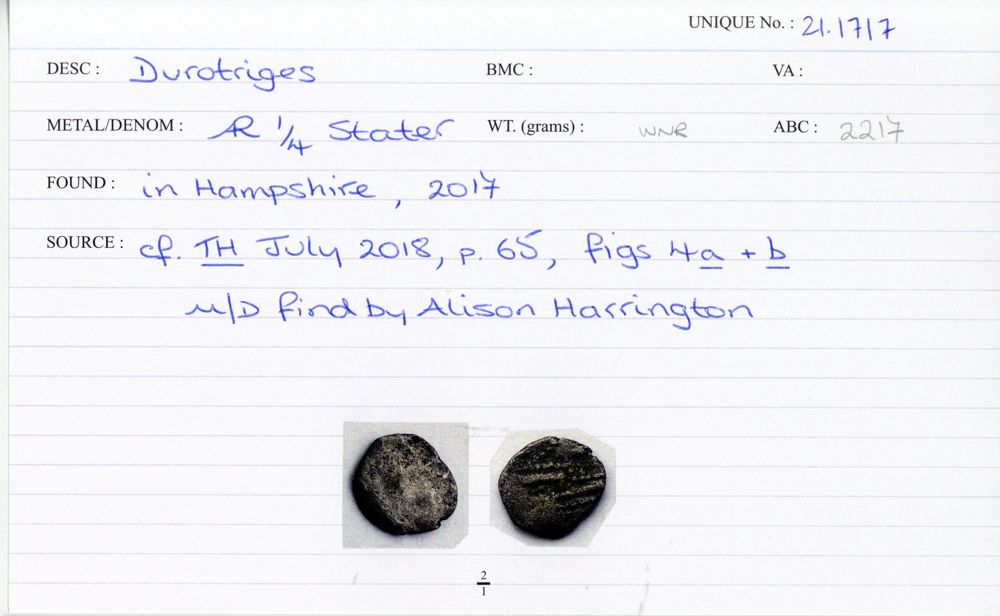 UNIQUE No. : 21.1717
DESC : Durotriges BMC : VA :
METAL/DENOM : AR 1/4 Stater WT. (grams) : WNR ABC : 2217
FOUND : in Hampshire, 2017
SOURCE : cf. TH July 2018, p. 65, figs 4a + b
M/D find by Alison Harrington
2
1